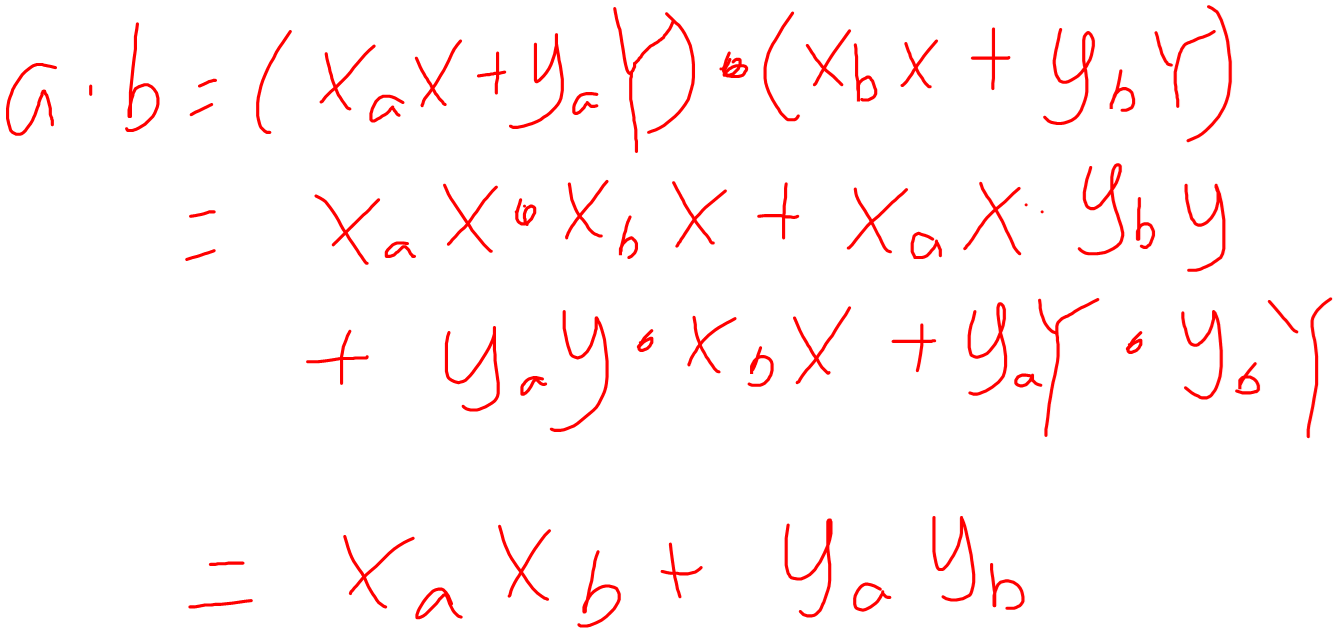 a · b = (x_a X + y_a Y) · (x_b X + y_b Y)
= x_a X · x_b X + x_a X · y_b y
+ y_a y · x_b X + y_a Y · y_b Y
= x_a x_b + y_a y_b